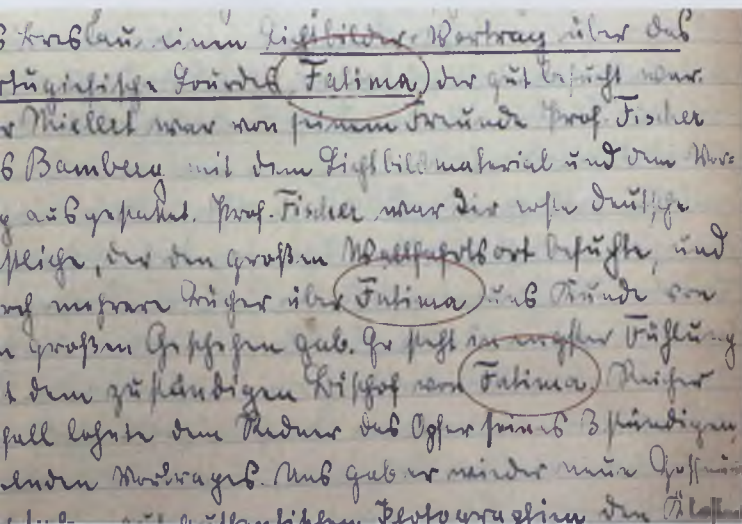 s Breslau, einen Lichtbilder-Vortrag über das
rtugiesische Lourdes Fatima, der gut besucht war.
r Mielert war von seinem Freunde Prof. Fischer
s Bamberg mit dem Lichtbildmaterial und dem Vor=
g ausgestattet. Prof. Fischer war der erste deutsche
stliche, der den großen Wallfahrtsort besuchte, und
rch mehrere Bücher über Fatima uns Kunde von
n großen Geschehen gab. Er steht in engster Fühlung
t dem zuständigen Bischof von Fatima. Reicher
fall lohnte dem Redner das Opfer seines 3 stündigen
lnden Vortrages. Uns gab er wieder neue
authentischen Photographien den